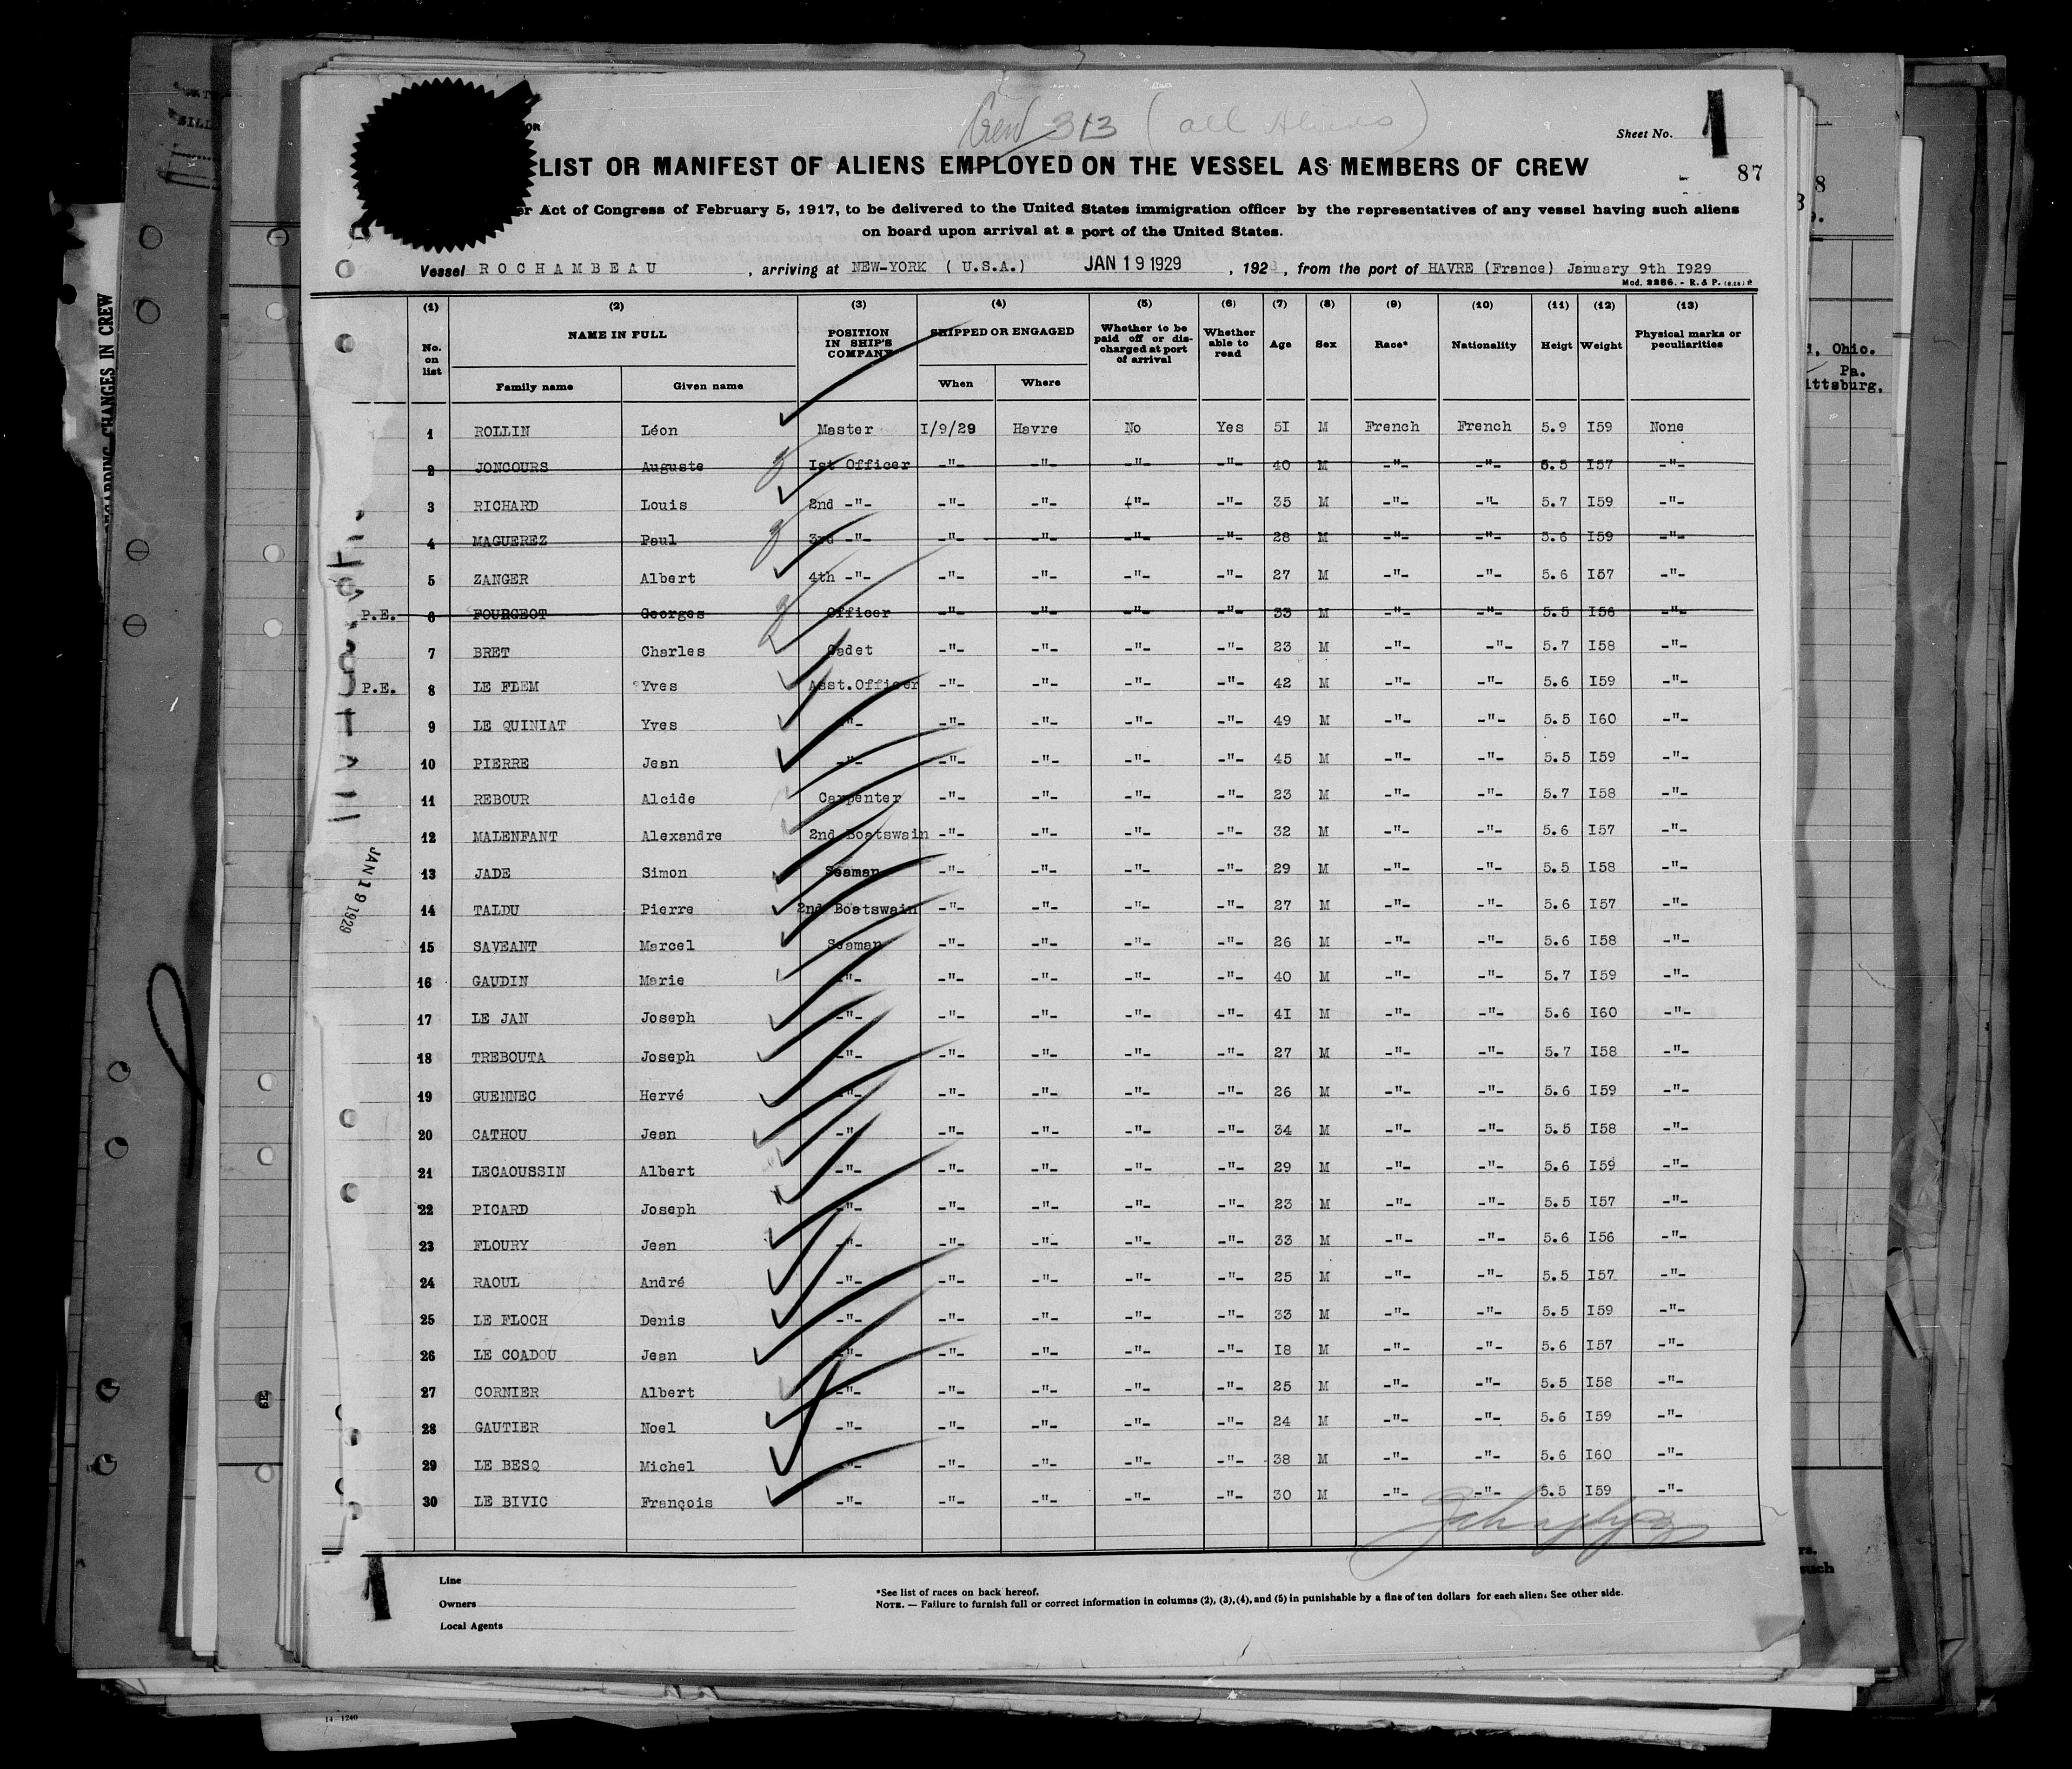 Crew 313 (all Aliens)
Sheet No. 1
87
LIST OR MANIFEST OF ALIENS EMPLOYED ON THE VESSEL AS MEMBERS OF CREW
er Act of Congress of February 5, 1917, to be delivered to the United States immigration officer by the representatives of any vessel having such aliens
on board upon arrival at a port of the United States.
Vessel ROCHAMBEAU , arriving at NEW-YORK (U.S.A.) JAN 19 1929 , 192 , from the port of HAVRE (France) January 9th I929
Mod. 2286. - R. & P.
(1) (2) (3) (4) (5) (6) (7) (8) (9) (10) (11) (12) (13)
No. on list NAME IN FULL POSITION IN SHIP'S COMPANY SHIPPED OR ENGAGED Whether to be paid off or discharged at port of arrival Whether able to read Age Sex Race* Nationality Heigt Weight Physical marks or peculiarities
Family name Given name When Where
1 ROLLIN Léon Master I/9/29 Havre No Yes 5I M French French 5.9 I59 None
2 JONCOURS Auguste Ist Officer -"- -"- -"- -"- 40 M -"- -"- 5.5 I57 -"-
3 RICHARD Louis 2nd -"- -"- -"- -"- -"- 35 M -"- -"- 5.7 I59 -"-
4 MAGUEREZ Paul 3rd -"- -"- -"- -"- -"- 28 M -"- -"- 5.6 I59 -"-
5 ZANGER Albert 4th -"- -"- -"- -"- -"- 27 M -"- -"- 5.6 I57 -"-
P.E. 6 FOURGEOT Georges Officer -"- -"- -"- -"- 33 M -"- -"- 5.5 I56 -"-
7 BRET Charles Cadet -"- -"- -"- -"- 23 M -"- -"- 5.7 I58 -"-
P.E. 8 LE FLEM Yves Asst.Officer -"- -"- -"- -"- 42 M -"- -"- 5.6 I59 -"-
9 LE QUINIAT Yves -"- -"- -"- -"- -"- 49 M -"- -"- 5.5 I60 -"-
10 PIERRE Jean -"- -"- -"- -"- -"- 45 M -"- -"- 5.5 I59 -"-
11 REBOUR Alcide Carpenter -"- -"- -"- -"- 23 M -"- -"- 5.7 I58 -"-
12 MALENFANT Alexandre 2nd Boatswain -"- -"- -"- -"- 32 M -"- -"- 5.6 I57 -"-
13 JADE Simon Seaman -"- -"- -"- -"- 29 M -"- -"- 5.5 I58 -"-
14 TALDU Pierre 2nd Boatswain -"- -"- -"- -"- 27 M -"- -"- 5.6 I57 -"-
15 SAVEANT Marcel Seaman -"- -"- -"- -"- 26 M -"- -"- 5.6 I58 -"-
16 GAUDIN Marie -"- -"- -"- -"- -"- 40 M -"- -"- 5.7 I59 -"-
17 LE JAN Joseph -"- -"- -"- -"- -"- 4I M -"- -"- 5.6 I60 -"-
18 TREBOUTA Joseph -"- -"- -"- -"- -"- 27 M -"- -"- 5.7 I58 -"-
19 GUENNEC Hervé -"- -"- -"- -"- -"- 26 M -"- -"- 5.6 I59 -"-
20 CATHOU Jean -"- -"- -"- -"- -"- 34 M -"- -"- 5.5 I58 -"-
21 LECAOUSSIN Albert -"- -"- -"- -"- -"- 29 M -"- -"- 5.6 I59 -"-
22 PICARD Joseph -"- -"- -"- -"- -"- 23 M -"- -"- 5.5 I57 -"-
23 FLOURY Jean -"- -"- -"- -"- -"- 33 M -"- -"- 5.6 I56 -"-
24 RAOUL André -"- -"- -"- -"- -"- 25 M -"- -"- 5.5 I57 -"-
25 LE FLOCH Denis -"- -"- -"- -"- -"- 33 M -"- -"- 5.5 I59 -"-
26 LE COADOU Jean -"- -"- -"- -"- -"- I8 M -"- -"- 5.6 I57 -"-
27 CORNIER Albert -"- -"- -"- -"- -"- 25 M -"- -"- 5.5 I58 -"-
28 GAUTIER Noel -"- -"- -"- -"- -"- 24 M -"- -"- 5.6 I59 -"-
29 LE BESQ Michel -"- -"- -"- -"- -"- 38 M -"- -"- 5.6 I60 -"-
30 LE BIVIC François -"- -"- -"- -"- -"- 30 M -"- -"- 5.5 I59 -"-
JAN 19 1929
Line
Owners
Local Agents
*See list of races on back hereof.
NOTE. — Failure to furnish full or correct information in columns (2), (3), (4), and (5) in punishable by a fine of ten dollars for each alien. See other side.
CHANGES IN CREW
Ohio.
Pa.
ittsburg.
such
14 1240